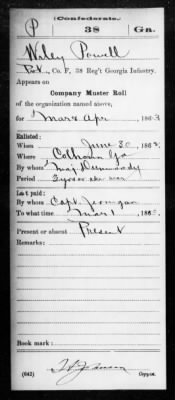 (Confederate.)
P 38 Ga.
Wiley Powell
Pvt., Co. F, 38 Reg't Georgia Infantry.
Appears on
Company Muster Roll
of the organization named above,
for Mar & Apr, 1863
Enlisted:
When June 30, 186
Where Calhoun Ga
By whom Maj Dunwoody
Period 3 years or the war
Last paid:
By whom Capt.
To what time Mar 1, 186
Present or absent Present
Remarks:
Book mark:
(642) Copyist.